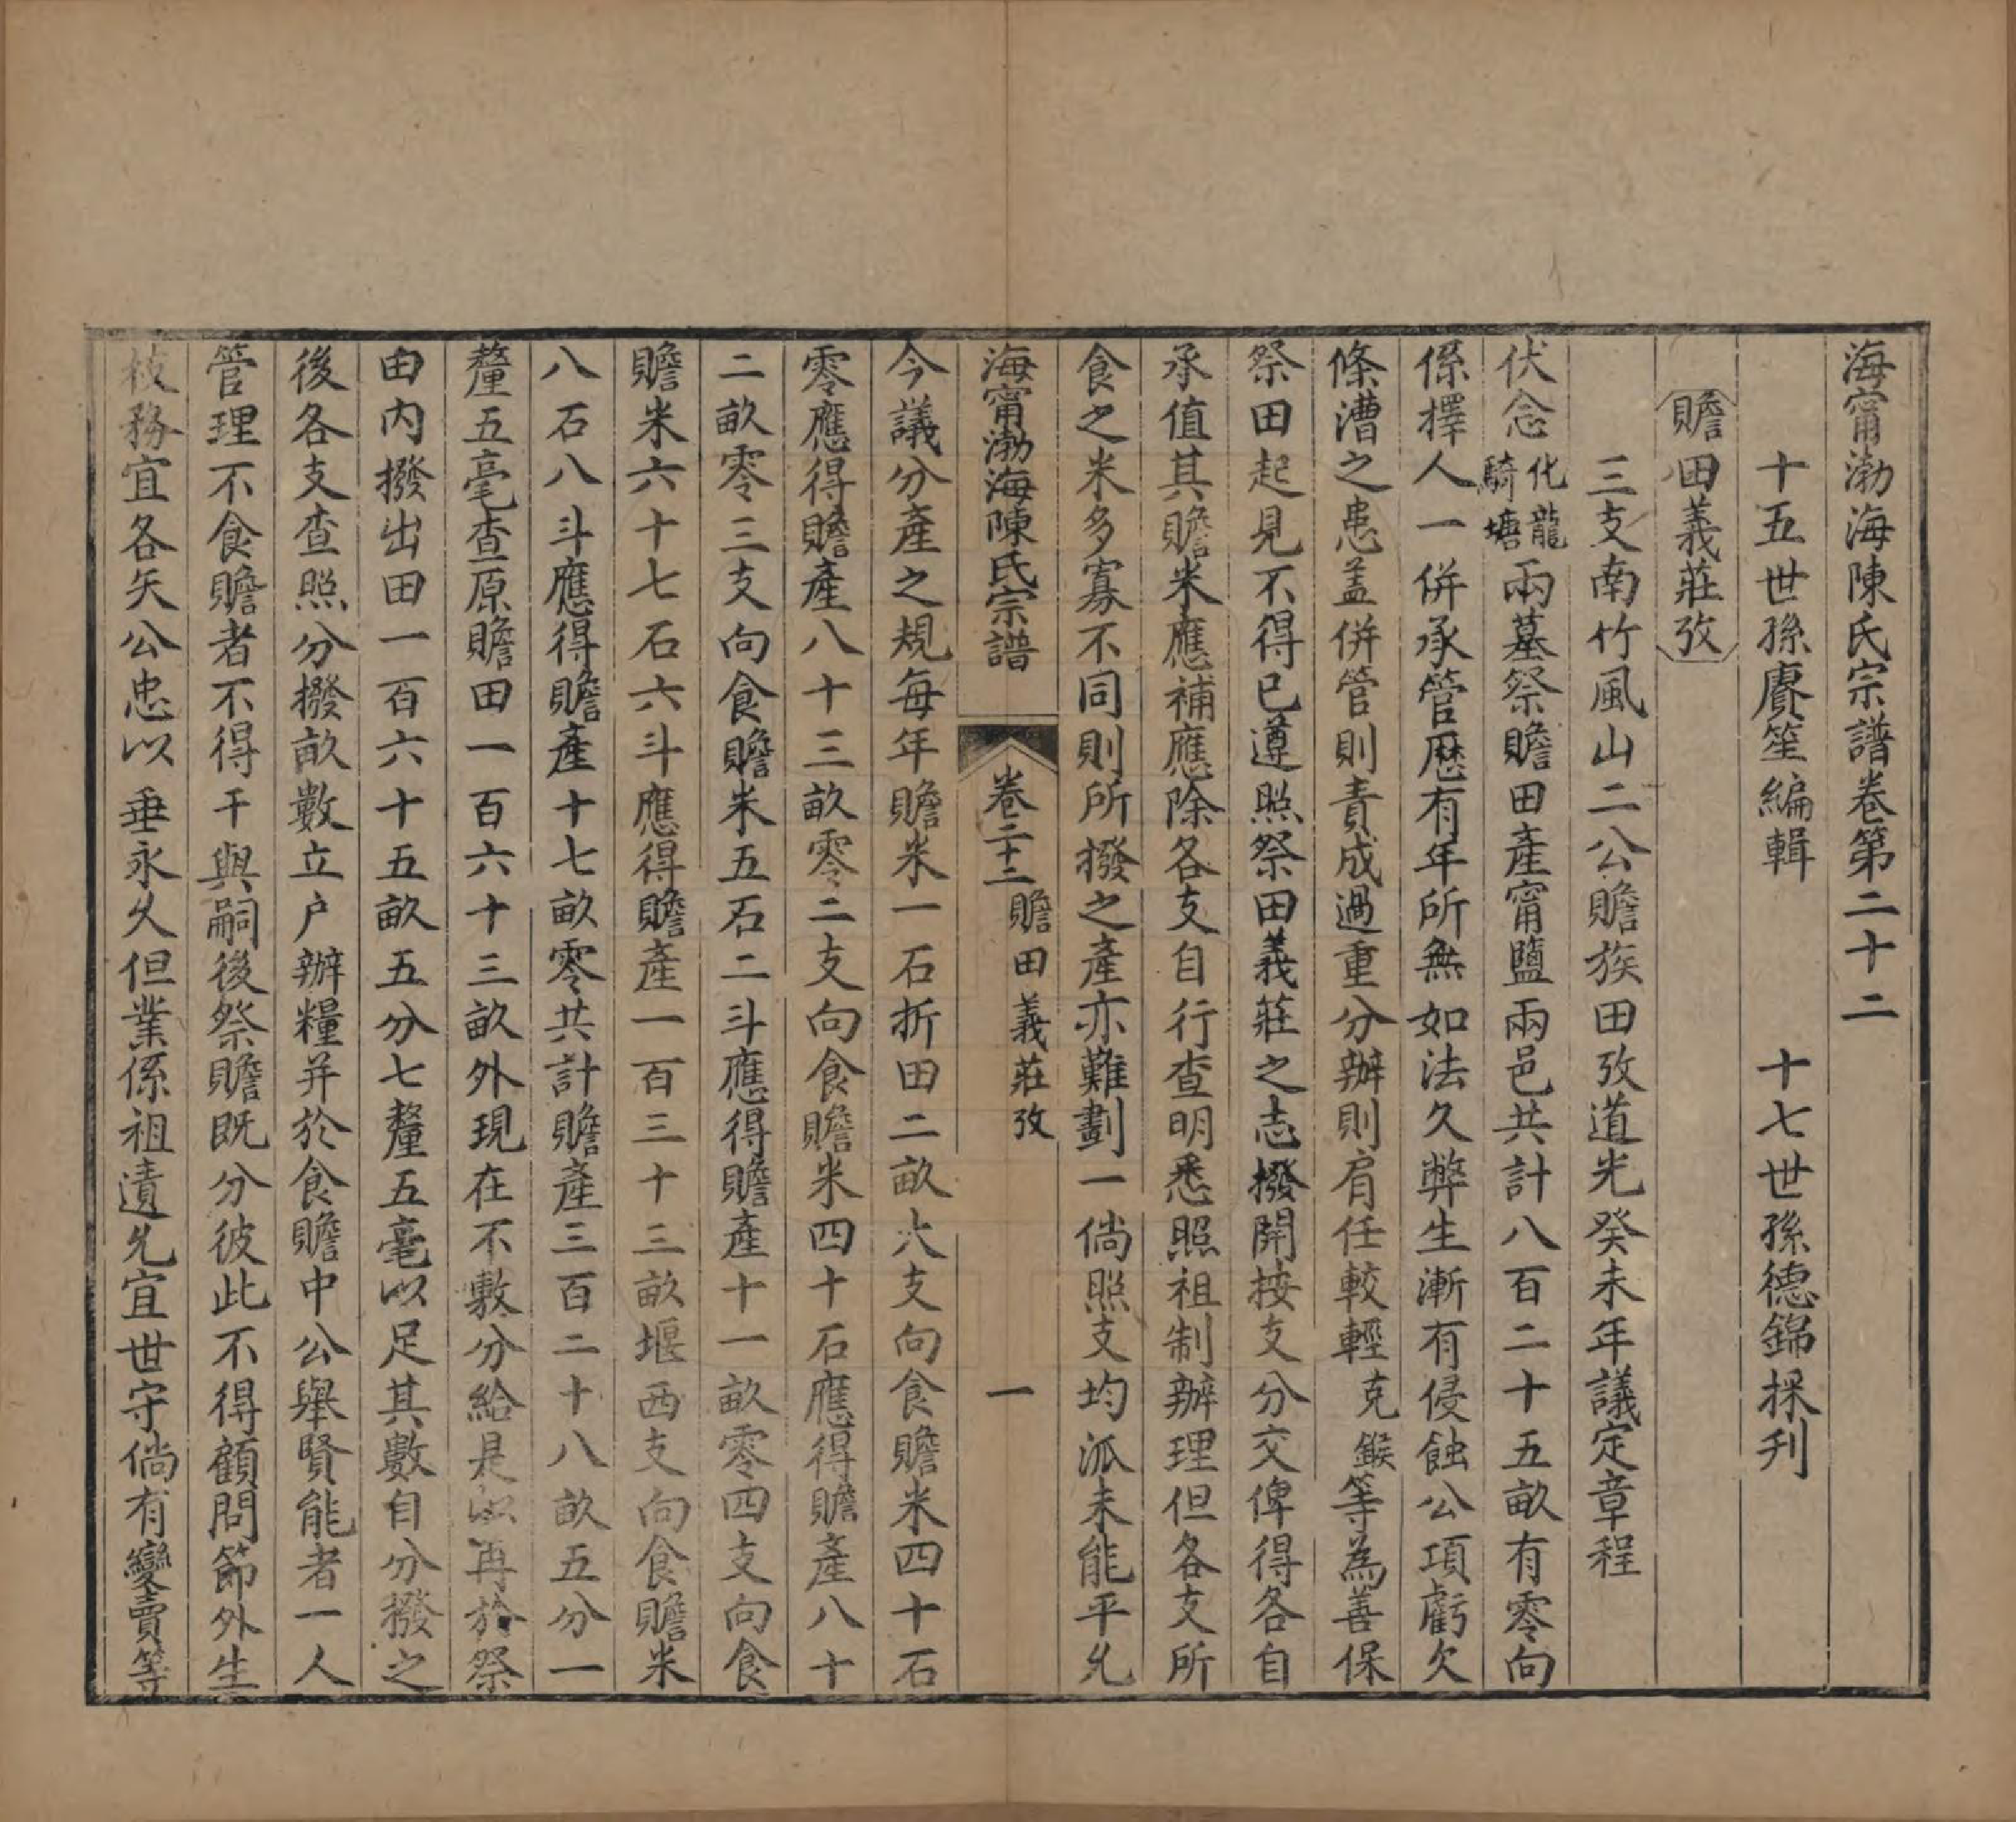 海甯渤海陳氏宗譜卷第二十二
十五世孫賡笙編輯　十七世孫德錦採刋
贍田義莊攷
三支南竹風山二公贍族田攷道光癸未年議定章程
伏念化龍騎塘兩墓祭贍田產甯鹽兩邑共計八百二十五畝有零向
係擇人一併承管歷有年所無如法久弊生漸有侵蝕公項虧欠
條漕之患盖併管則責成過重分辦則肩任較輕克鍭等為善保
祭田起見不得已遵照祭田義莊之志撥開按支分交俾得各自
承值其贍米應補應除各支自行查明悉照祖制辦理但各支所
食之米多寡不同則所撥之產亦難劃一倘照支均派未能平允
海甯渤海陳氏宗譜　卷二十二　贍田義莊攷　一
今議分產之規每年贍米一石折田二畝大支向食贍米四十石
零應得贍產八十三畝零二支向食贍米四十石應得贍產八十
二畝零三支向食贍米五石二斗應得贍產十一畝零四支向食
贍米六十七石六斗應得贍產一百三十三畝堰西支向食贍米
八石八斗應得贍產十七畝零共計贍產三百二十八畝五分一
釐五毫查原贍田一百六十三畝外現在不敷分給是以再於祭
田內撥出田一百六十五畝五分七釐五毫以足其數自分撥之
後各支查照分撥畝數立户辦糧并於食贍中公舉賢能者一人
管理不食贍者不得干與嗣後祭贍既分彼此不得顧問節外生
枝務宜各矢公忠以垂永久但業係祖遺允宜世守倘有變賣等